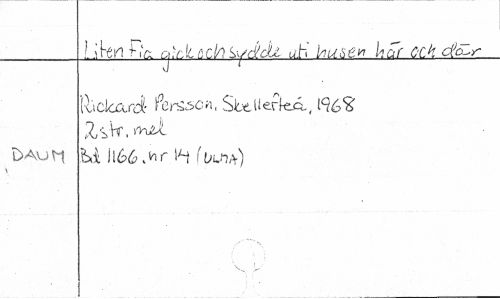 Liten Fia gick och sydde uti husen här och där
Rickard Persson, Skellefteå, 1968
2 str. mel
DAUM Bd 1166. nr 14 (ULMA)